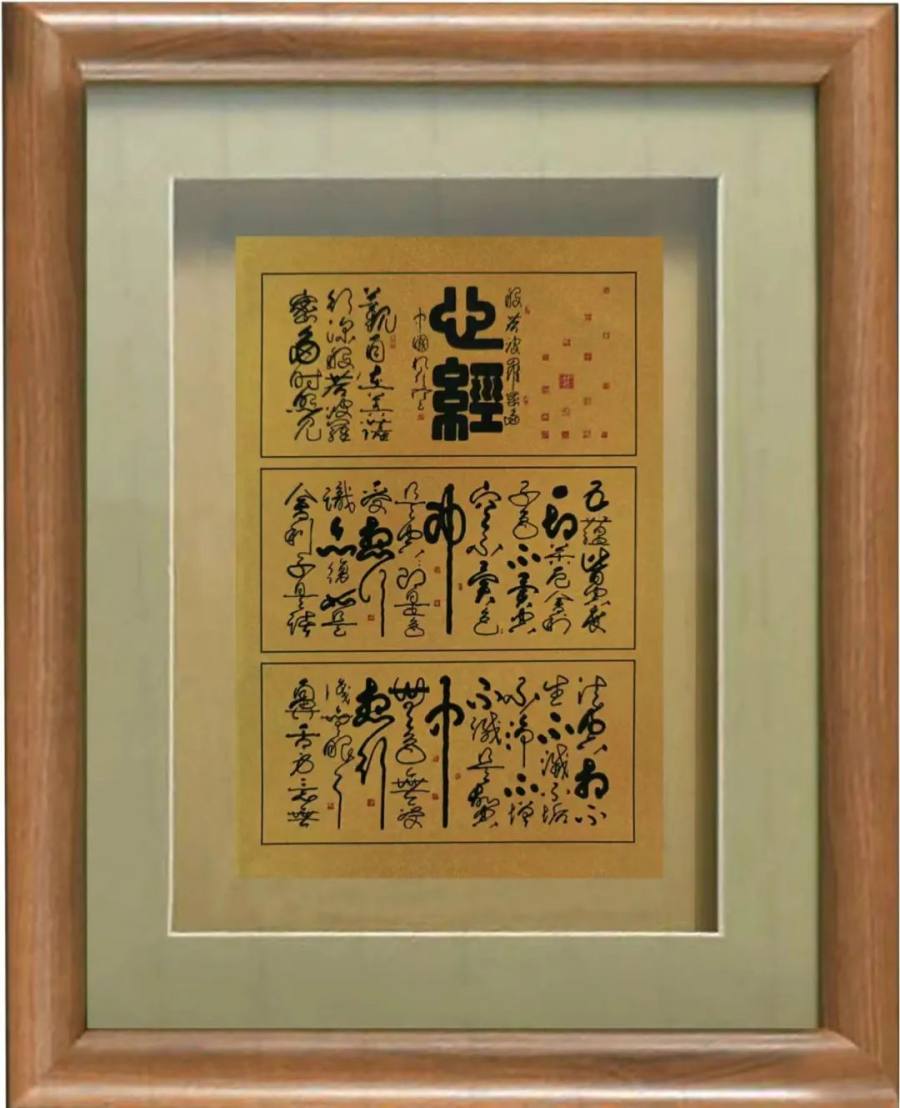 般若波羅蜜多
心經
中國
觀自在菩薩
行深般若波羅
蜜多時照見
五蘊皆空度
一切苦厄舍利
子色不異空
空不異色
即
是空空即是色
受想行
識亦復如是
舍利子是諸
法空相不
生不滅不垢
不淨不增
不減是故空
中
無色無受
想行
識無眼耳
鼻舌身意無